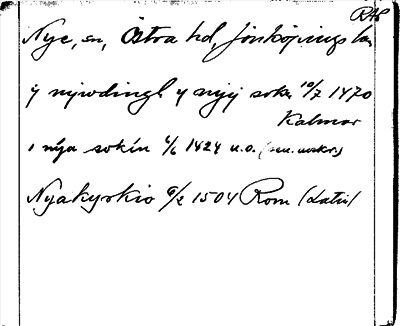 RAP
Nye, sn, Östra hd, Jönköpings län
y nywdingh y nyy sokn 10/7 1470
Kalmar
i nya sokin 4/6 1424 u.o. (sen. avskr)
Nyakyrkio 9/2 1504 Rom (Latin)